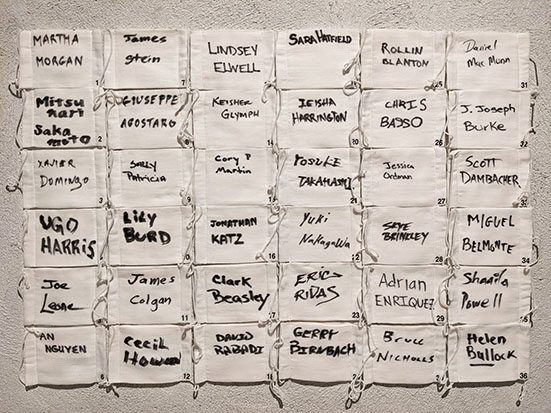 MARTHA
MORGAN
1
Mitsu
nari
Saka
moto
2
XAVIER
DOMINGO
3
UGO
HARRIS
Joe
Leone
AN
NGUYEN
6
James
Stein
7
GIUSEPPE
AGOSTARO
8
SALLY
Patricia
9
LILY
BURD
10
James
Colgan
11
Cecil
12
LINDSEY
ELWELL
KEISHER
GLYMPH
Cory P
Martin
JONATHAN
KATZ
16
Clark
Beasley
DAVID
RABADI
18
SARA HATFIELD
IEISHA
HARRINGTON
20
YOSUKE
TAKAHASHI
21
YUKI
NAKAGAWA
ERIC
RIVAS
23
GERRY
BIRNBACH
ROLLIN
BLANTON
CHRIS
BASSO
26
Jessica
Ordman
27
SKYE
BRINKLEY
28
Adrian
ENRIQUEZ
29
NICHOLLS
Daniel
Mac Munn
31
J. Joseph
Burke
32
SCOTT
DAMBACHER
MIGUEL
BELMONTE
34
Powell
Helen
Bullock
36